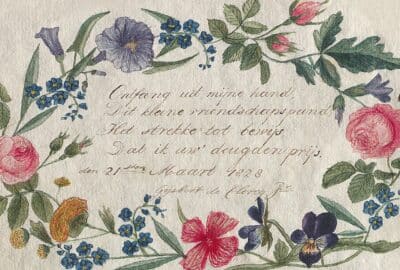 Ontfang uit mijne hand,
Dit kleine vriendschapspand,
Het strekke tot bewijs,
Dat ik uw' deugden prijs,
den 21sten Maart 1828
de